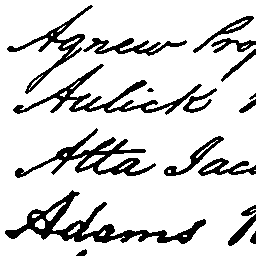 Agnew
Aulick
Atta Jac
Adams